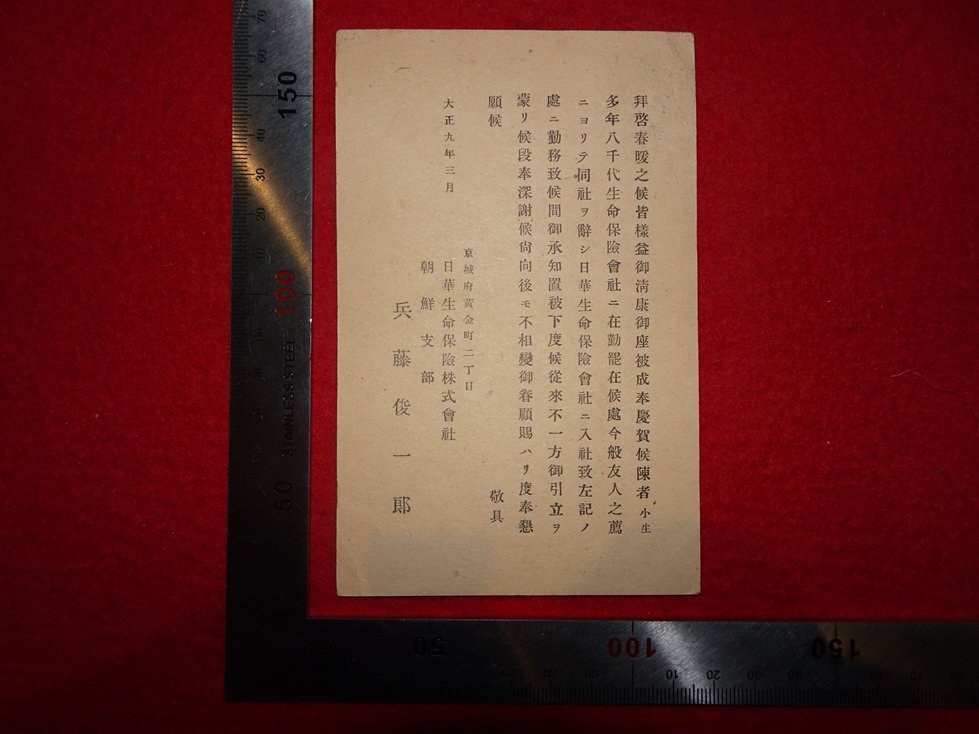 拜啓春暖之候皆樣益御淸康御座被成奉慶賀候陳者小生
多年八千代生命保險會社ニ在勤罷在候處今般友人之薦
ニヨリテ同社ヲ辭シ日華生命保險會社ニ入社致左記ノ
處ニ勤務致候間御承知置被下度候從來不一方御引立ヲ
蒙リ候段奉深謝候尙向後モ不相變御眷顧賜ハリ度奉懇
願候
敬具
大正九年三月
京城府黃金町二丁目
日華生命保險株式會社
朝鮮支部
兵藤俊一郞
70
150
40
30
20
10
100
STAINLESS STEEL
50
50
90
100
10
20
30
40
150
70
80